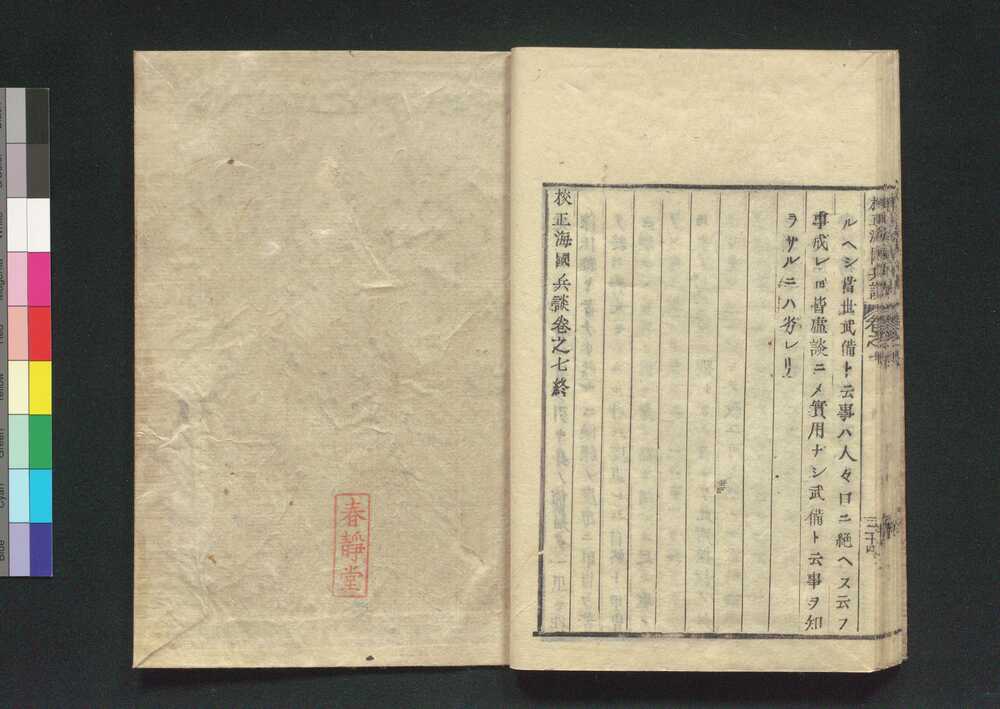 ルヘシ當世武備ト云事ハ人々口ニ絶ヘス云フ
事成レ𪜈皆虚談ニメ實用ナシ武備ト云事ヲ知
ラサルニハ劣レリ
校正海國兵談卷之七終
春靜堂